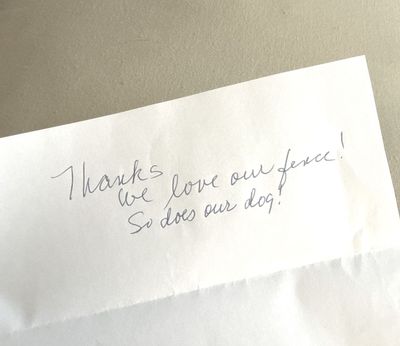 Thanks
We love our fence!
So does our dog!